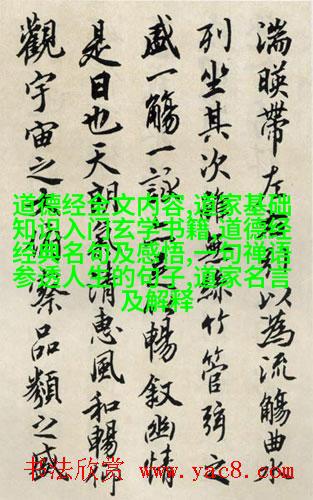 湍暎帶左引以為流觴曲
列坐其次雖無絲竹管弦之
盛一觴一詠暢敘幽情
是日也天氣清惠風和暢仰
觀宇宙之察品類之盛
道德经全文内容,道家基础
知识入门玄学书籍,道德经
经典名句及感悟,一句禅语
参透人生的句子,道家名言
及解释
书法欣赏 www.yac8.com